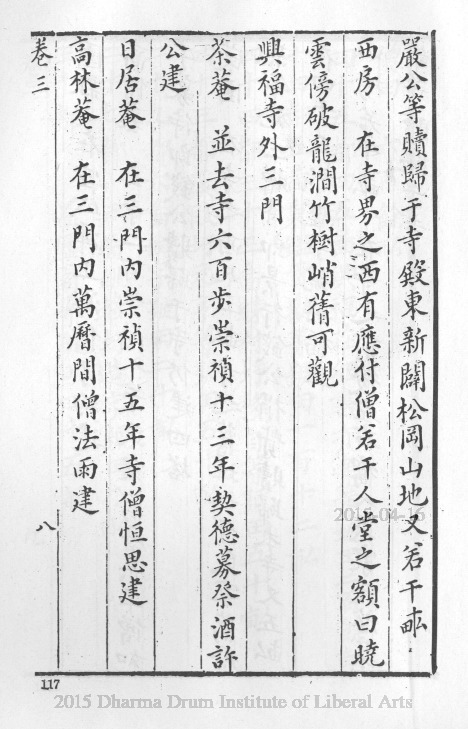 嚴公等贖歸于寺殿東新闢松岡山地又若干畝
西房　在寺界之西有應付僧若干人堂之額曰曉
雲傍破龍澗竹樹峭蒨可觀
興福寺外三門
茶菴　並去寺六百步崇禎十三年契德募祭酒許
公建
日居菴　在三門內崇禎十五年寺僧恒思建
高林菴　在三門內萬曆間僧法雨建
卷三
八
117
2015-04-16
2015 Dharma Drum Institute of Liberal Arts